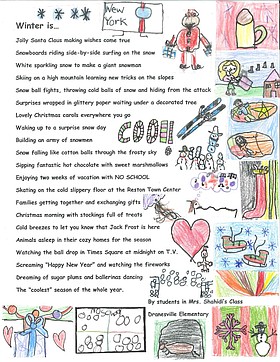 New York
Winter is...
Jolly Santa Claus making wishes come true
Snowboarders riding side-by-side surfing on the snow
White sparkling snow to make a giant snowman
Skiing on a high mountain learning new tricks on the slopes
Snow ball fights, throwing cold balls of snow and hiding from the attack
Surprises wrapped in glittery paper waiting under a decorated tree
Lovely Christmas carols everywhere you go
Waking up to a surprise snow day
Building an army of snowmen
COOL!!
Snow falling like cotton balls through the frosty sky
Sipping fantastic hot chocolate with sweet marshmallows
Enjoying two weeks of vacation with NO SCHOOL
Skating on the cold slippery floor at the Reston Town Center
Families getting together and exchanging gifts
Christmas morning with stockings full of treats
Cold breezes to let you know that Jack Frost is here
Animals asleep in their cozy homes for the season
Watching the ball drop in Times Square at midnight on T.V.
Screaming "Happy New Year" and watching the fireworks
Dreaming of sugar plums and ballerinas dancing
The "coolest" season of the whole year.
By students in Mrs. Shahidi's Class
Dranesville Elementary